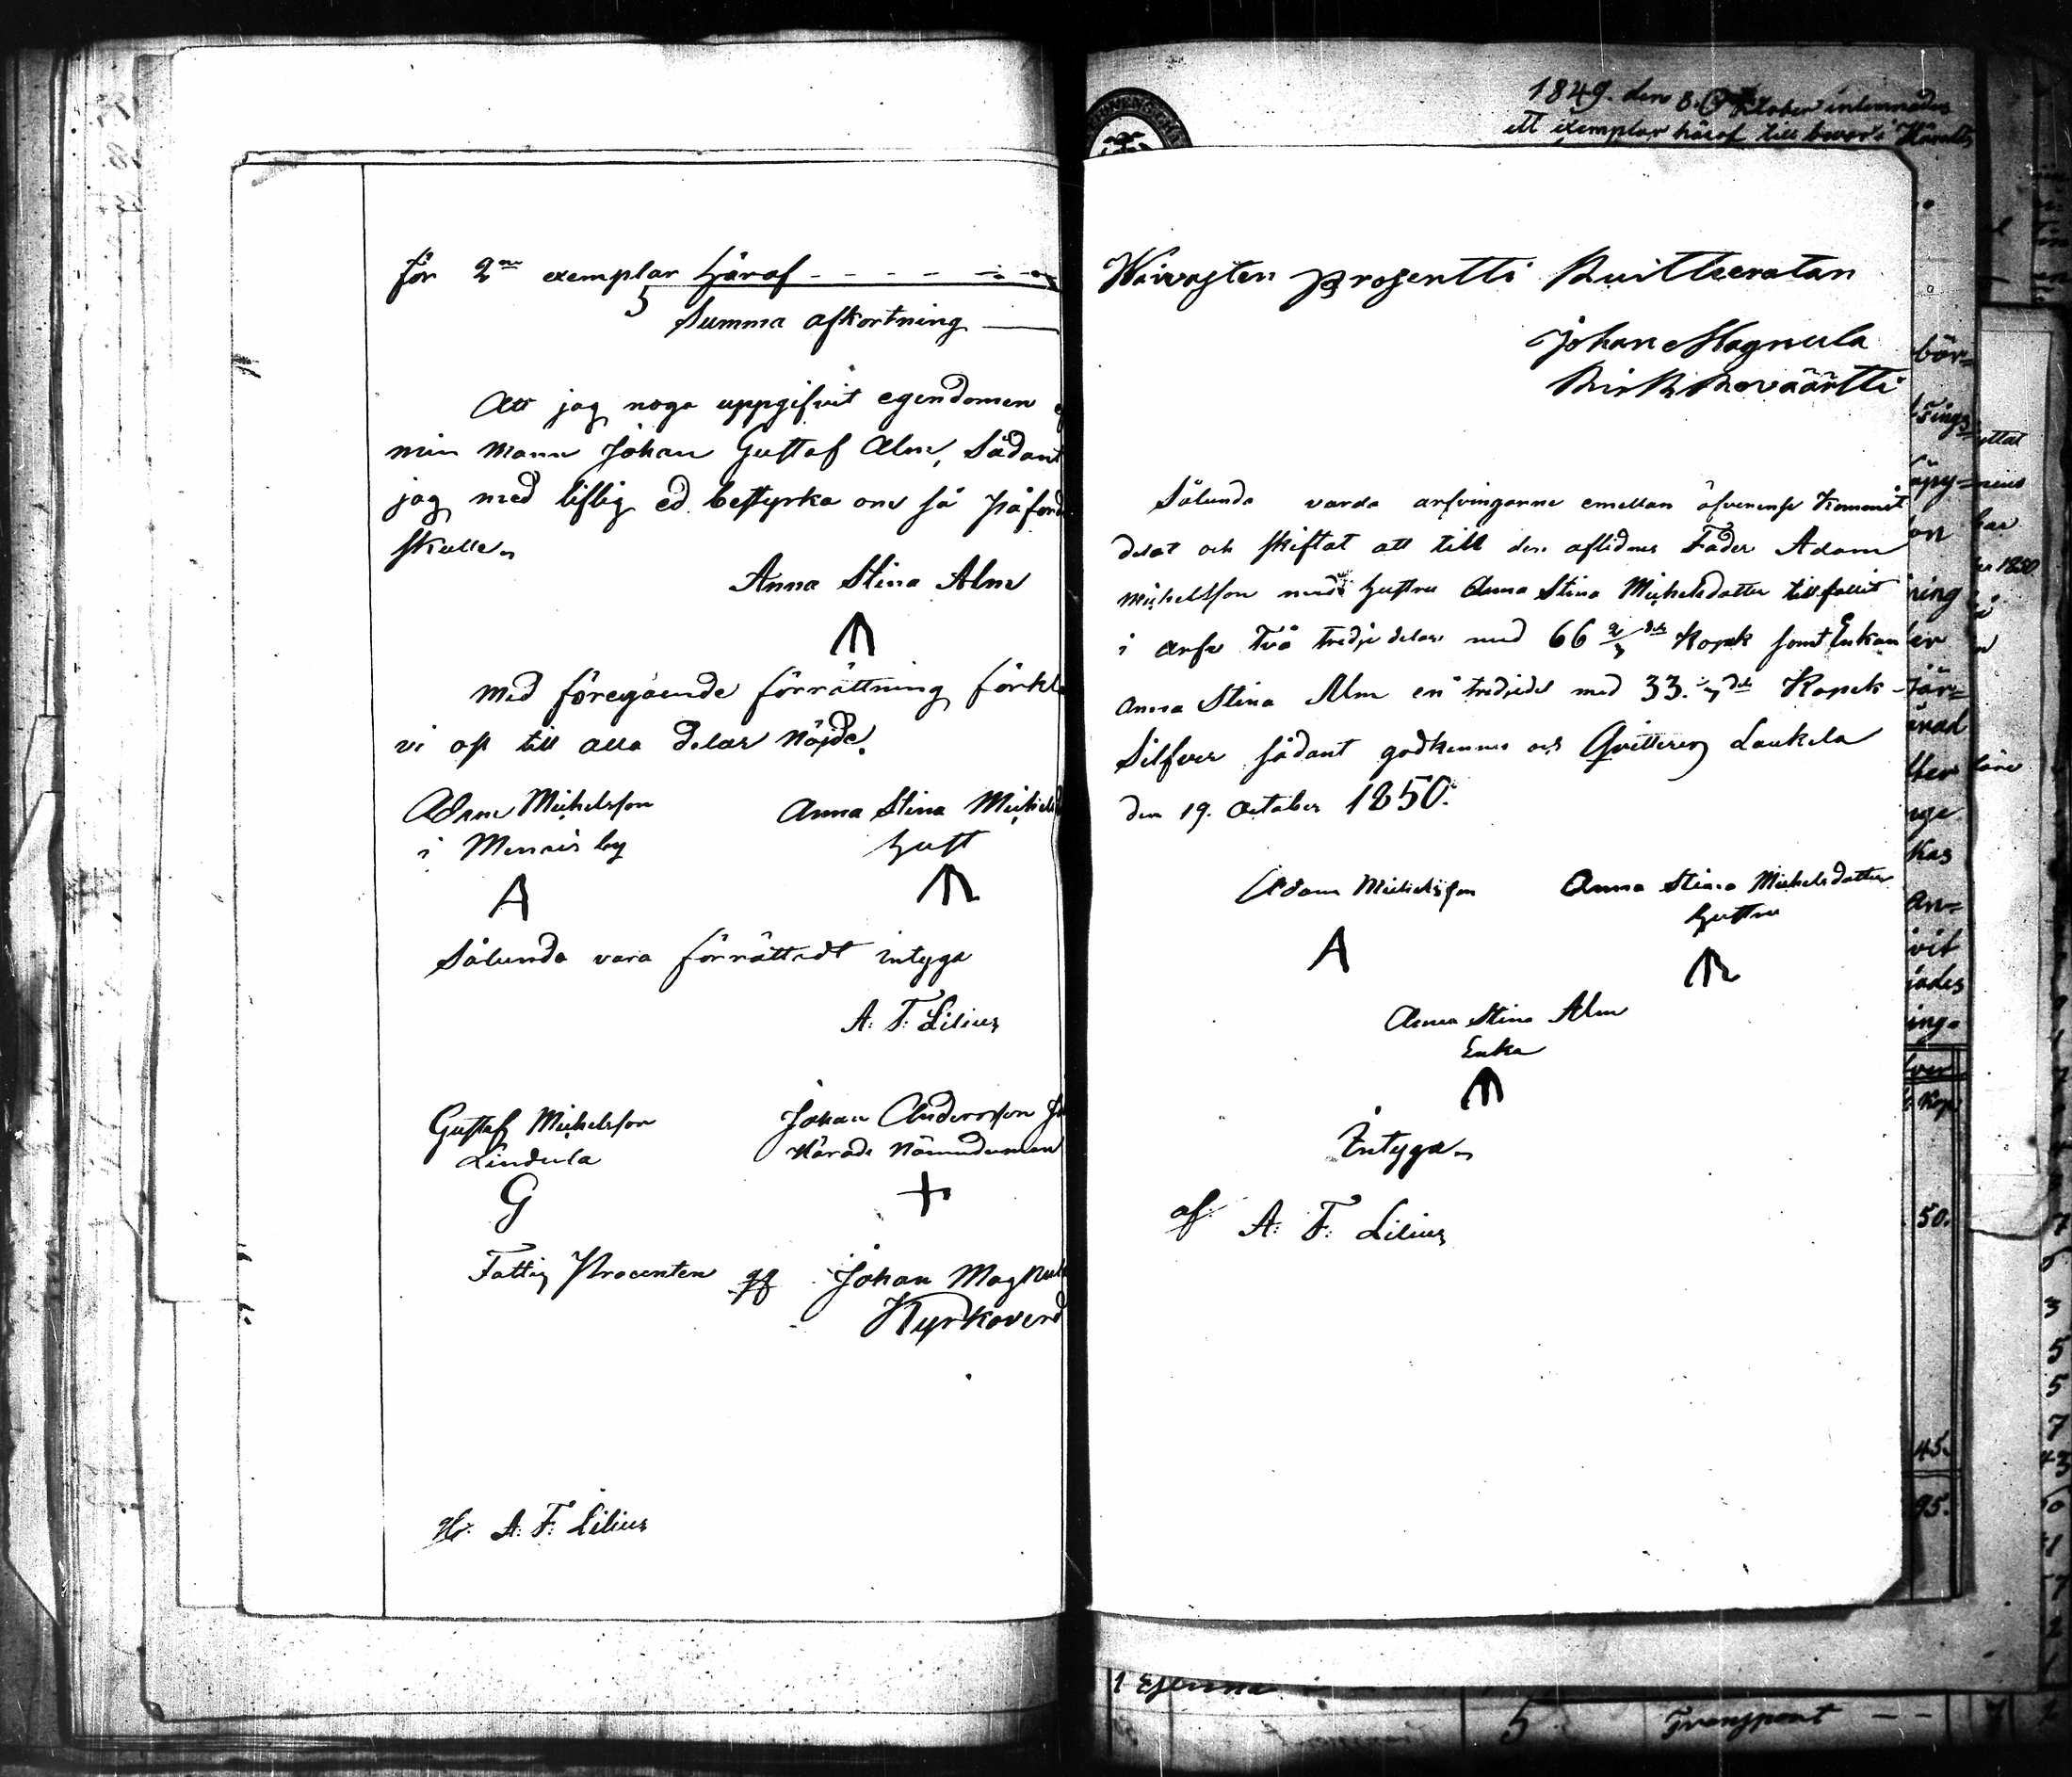 för 2ne exemplar häraf - - - - -
5
Summa afkortning
Att jag noga uppgifvit egendomen
min Mann Johan Gustaf Alm, Sådant
jag med liflig ed bestyrka om så påford
skulle.
Anna Stina Alm
Med föregående förrättning förkl
vi oss till alla delar Nöjde.
Adam Michelsson
i Mennis by
Anna Stina Michelsd
Hust
A
Sålunda vara förrättadt intyga
A: F: Lilius
Gustaf Michelsson
Lindula
G
Johan Andersson
Härads Nämndeman
+
Fattig Procenten qf Johan Magnul
Kyrkoverd
A: F: Lilius
1849. den 8. October inlemnades
ett exemplar häraf till bevars Häradts
Waivasten prosentti Kuitteeratan
Johan Magnula
Kirkkovääртti
Sålunda varda arfvingarne emellan öfverens Kommit
delat och skiftat att till den aflidnes Fader Adam
Michelsson med hustru Anna Stina Michelsdotter tillfallit
i arfv två tredje delar med 66 2/3 dels Kopek samt Enkan
Anna Stina Alm en tredjedel med 33. 1/3 dels Kopek
Silfver sådant godkennes och Qvitteras Laukela
den 19. October 1850.
Adam Michelsson
A
Anna Stina Michelsdotter
hustru
Anna Stina Alm
Enka
Intyga
af A: F: Lilius
bör=
ning
an=
vit
50.
45.
95.
5 Transport - -